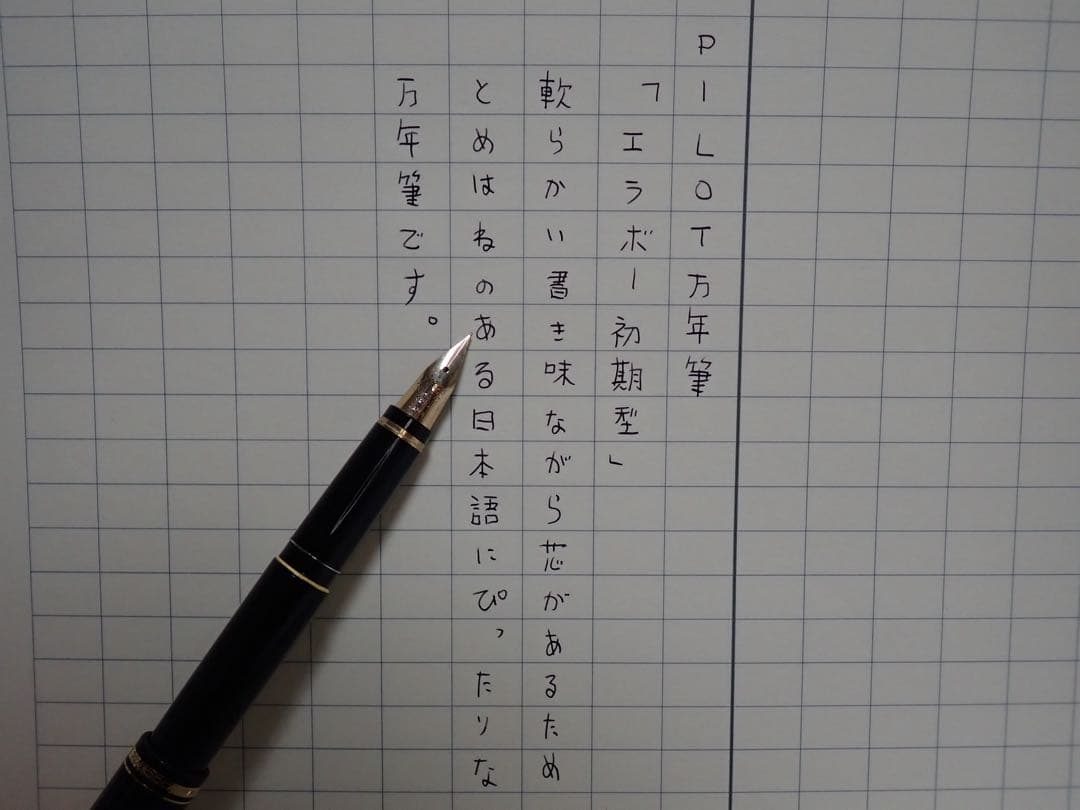 PILOT万年筆
「エラボー初期型」
軟らかい書き味ながら芯があるため
とめはねのある日本語にぴったりな
万年筆です。